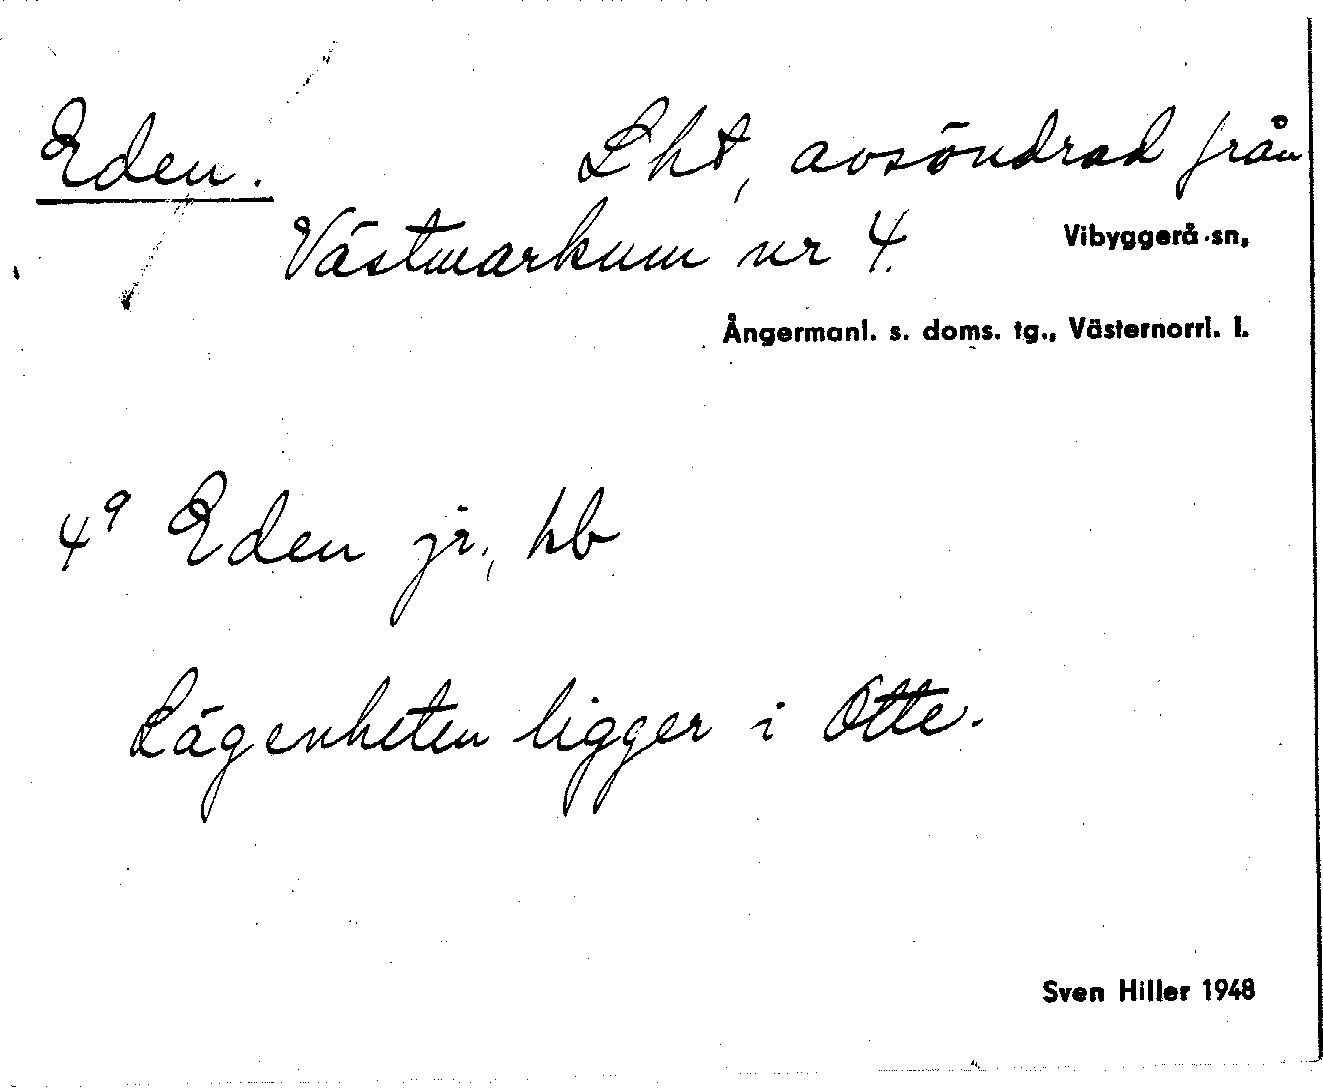 Eden. Lht, avsöndrad från
Västmarkum nr 4.
Vibyggerå sn,
Ångermanl. s. doms. tg., Västernorrl. l.
4⁹ Eden jr., hb
Lägenheten ligger i Otte.
Sven Hiller 1948